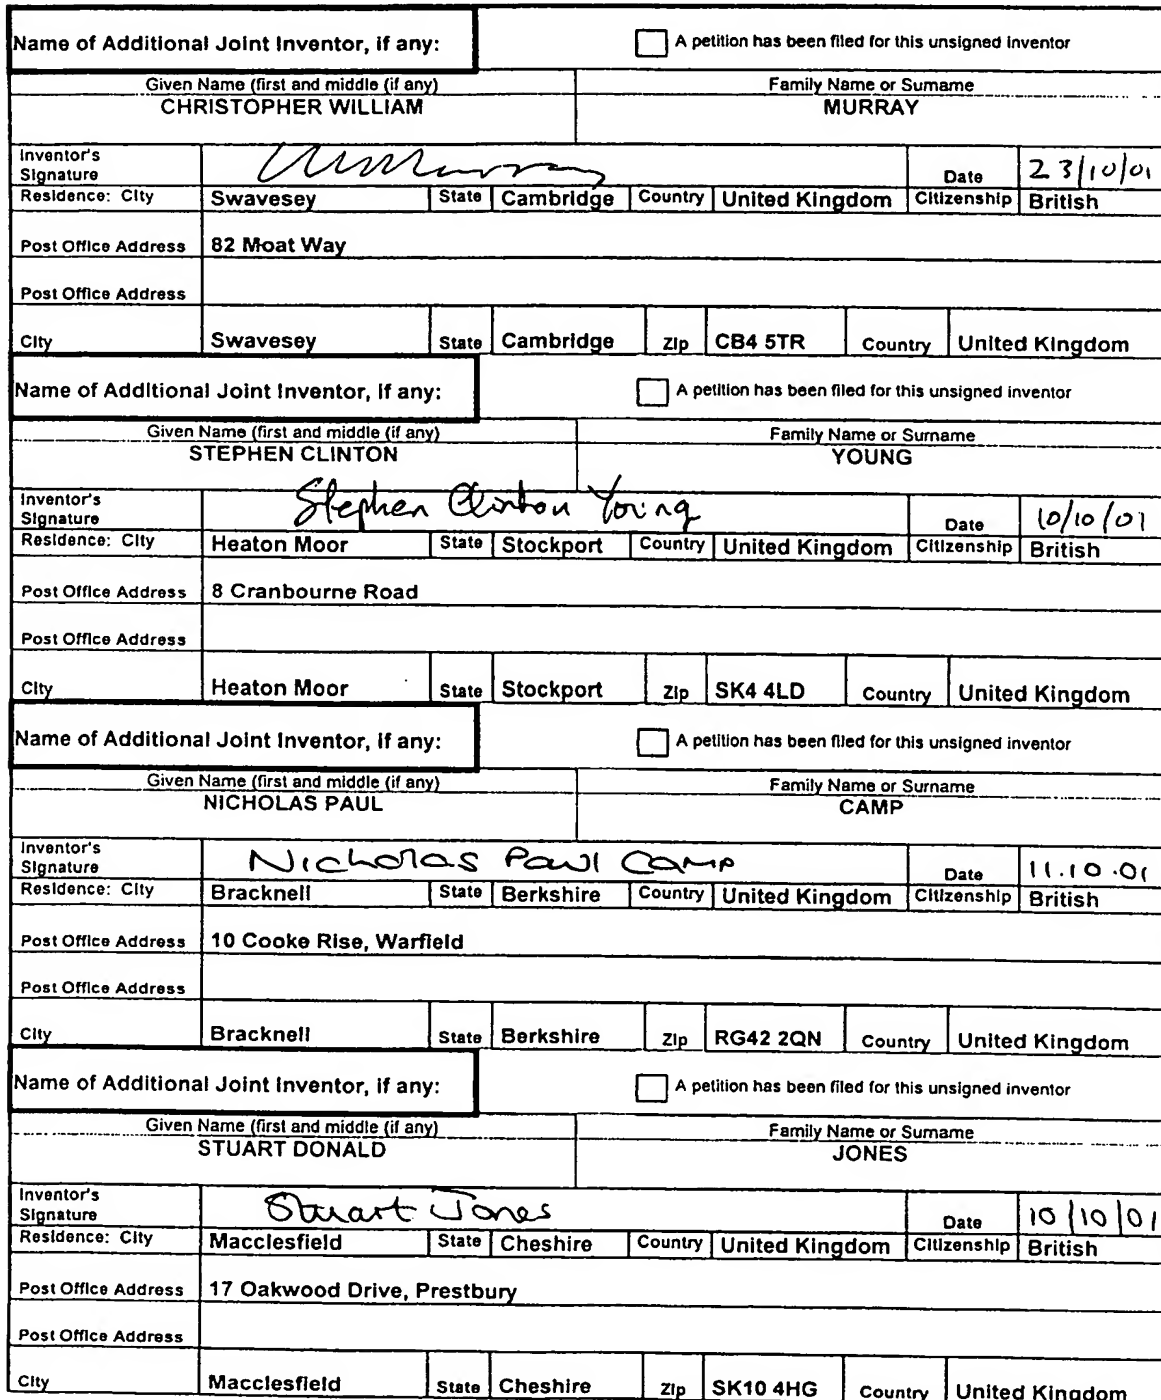 Name of Additional Joint Inventor, if any: A petition has been filed for this unsigned inventor
Given Name (first and middle (if any) Family Name or Surname
CHRISTOPHER WILLIAM MURRAY
Inventor's Signature Date 23/10/01
Residence: City Swavesey State Cambridge Country United Kingdom Citizenship British
Post Office Address 82 Moat Way
Post Office Address
City Swavesey State Cambridge Zip CB4 5TR Country United Kingdom
Name of Additional Joint Inventor, if any: A petition has been filed for this unsigned inventor
Given Name (first and middle (if any) Family Name or Surname
STEPHEN CLINTON YOUNG
Inventor's Signature Stephen Clinton Young Date 10/10/01
Residence: City Heaton Moor State Stockport Country United Kingdom Citizenship British
Post Office Address 8 Cranbourne Road
Post Office Address
City Heaton Moor State Stockport Zip SK4 4LD Country United Kingdom
Name of Additional Joint Inventor, if any: A petition has been filed for this unsigned inventor
Given Name (first and middle (if any) Family Name or Surname
NICHOLAS PAUL CAMP
Inventor's Signature Nicholas Paul Camp Date 11.10.01
Residence: City Bracknell State Berkshire Country United Kingdom Citizenship British
Post Office Address 10 Cooke Rise, Warfield
Post Office Address
City Bracknell State Berkshire Zip RG42 2QN Country United Kingdom
Name of Additional Joint Inventor, if any: A petition has been filed for this unsigned inventor
Given Name (first and middle (if any) Family Name or Surname
STUART DONALD JONES
Inventor's Signature Stuart Jones Date 10/10/01
Residence: City Macclesfield State Cheshire Country United Kingdom Citizenship British
Post Office Address 17 Oakwood Drive, Prestbury
Post Office Address
City Macclesfield State Cheshire Zip SK10 4HG Country United Kingdom